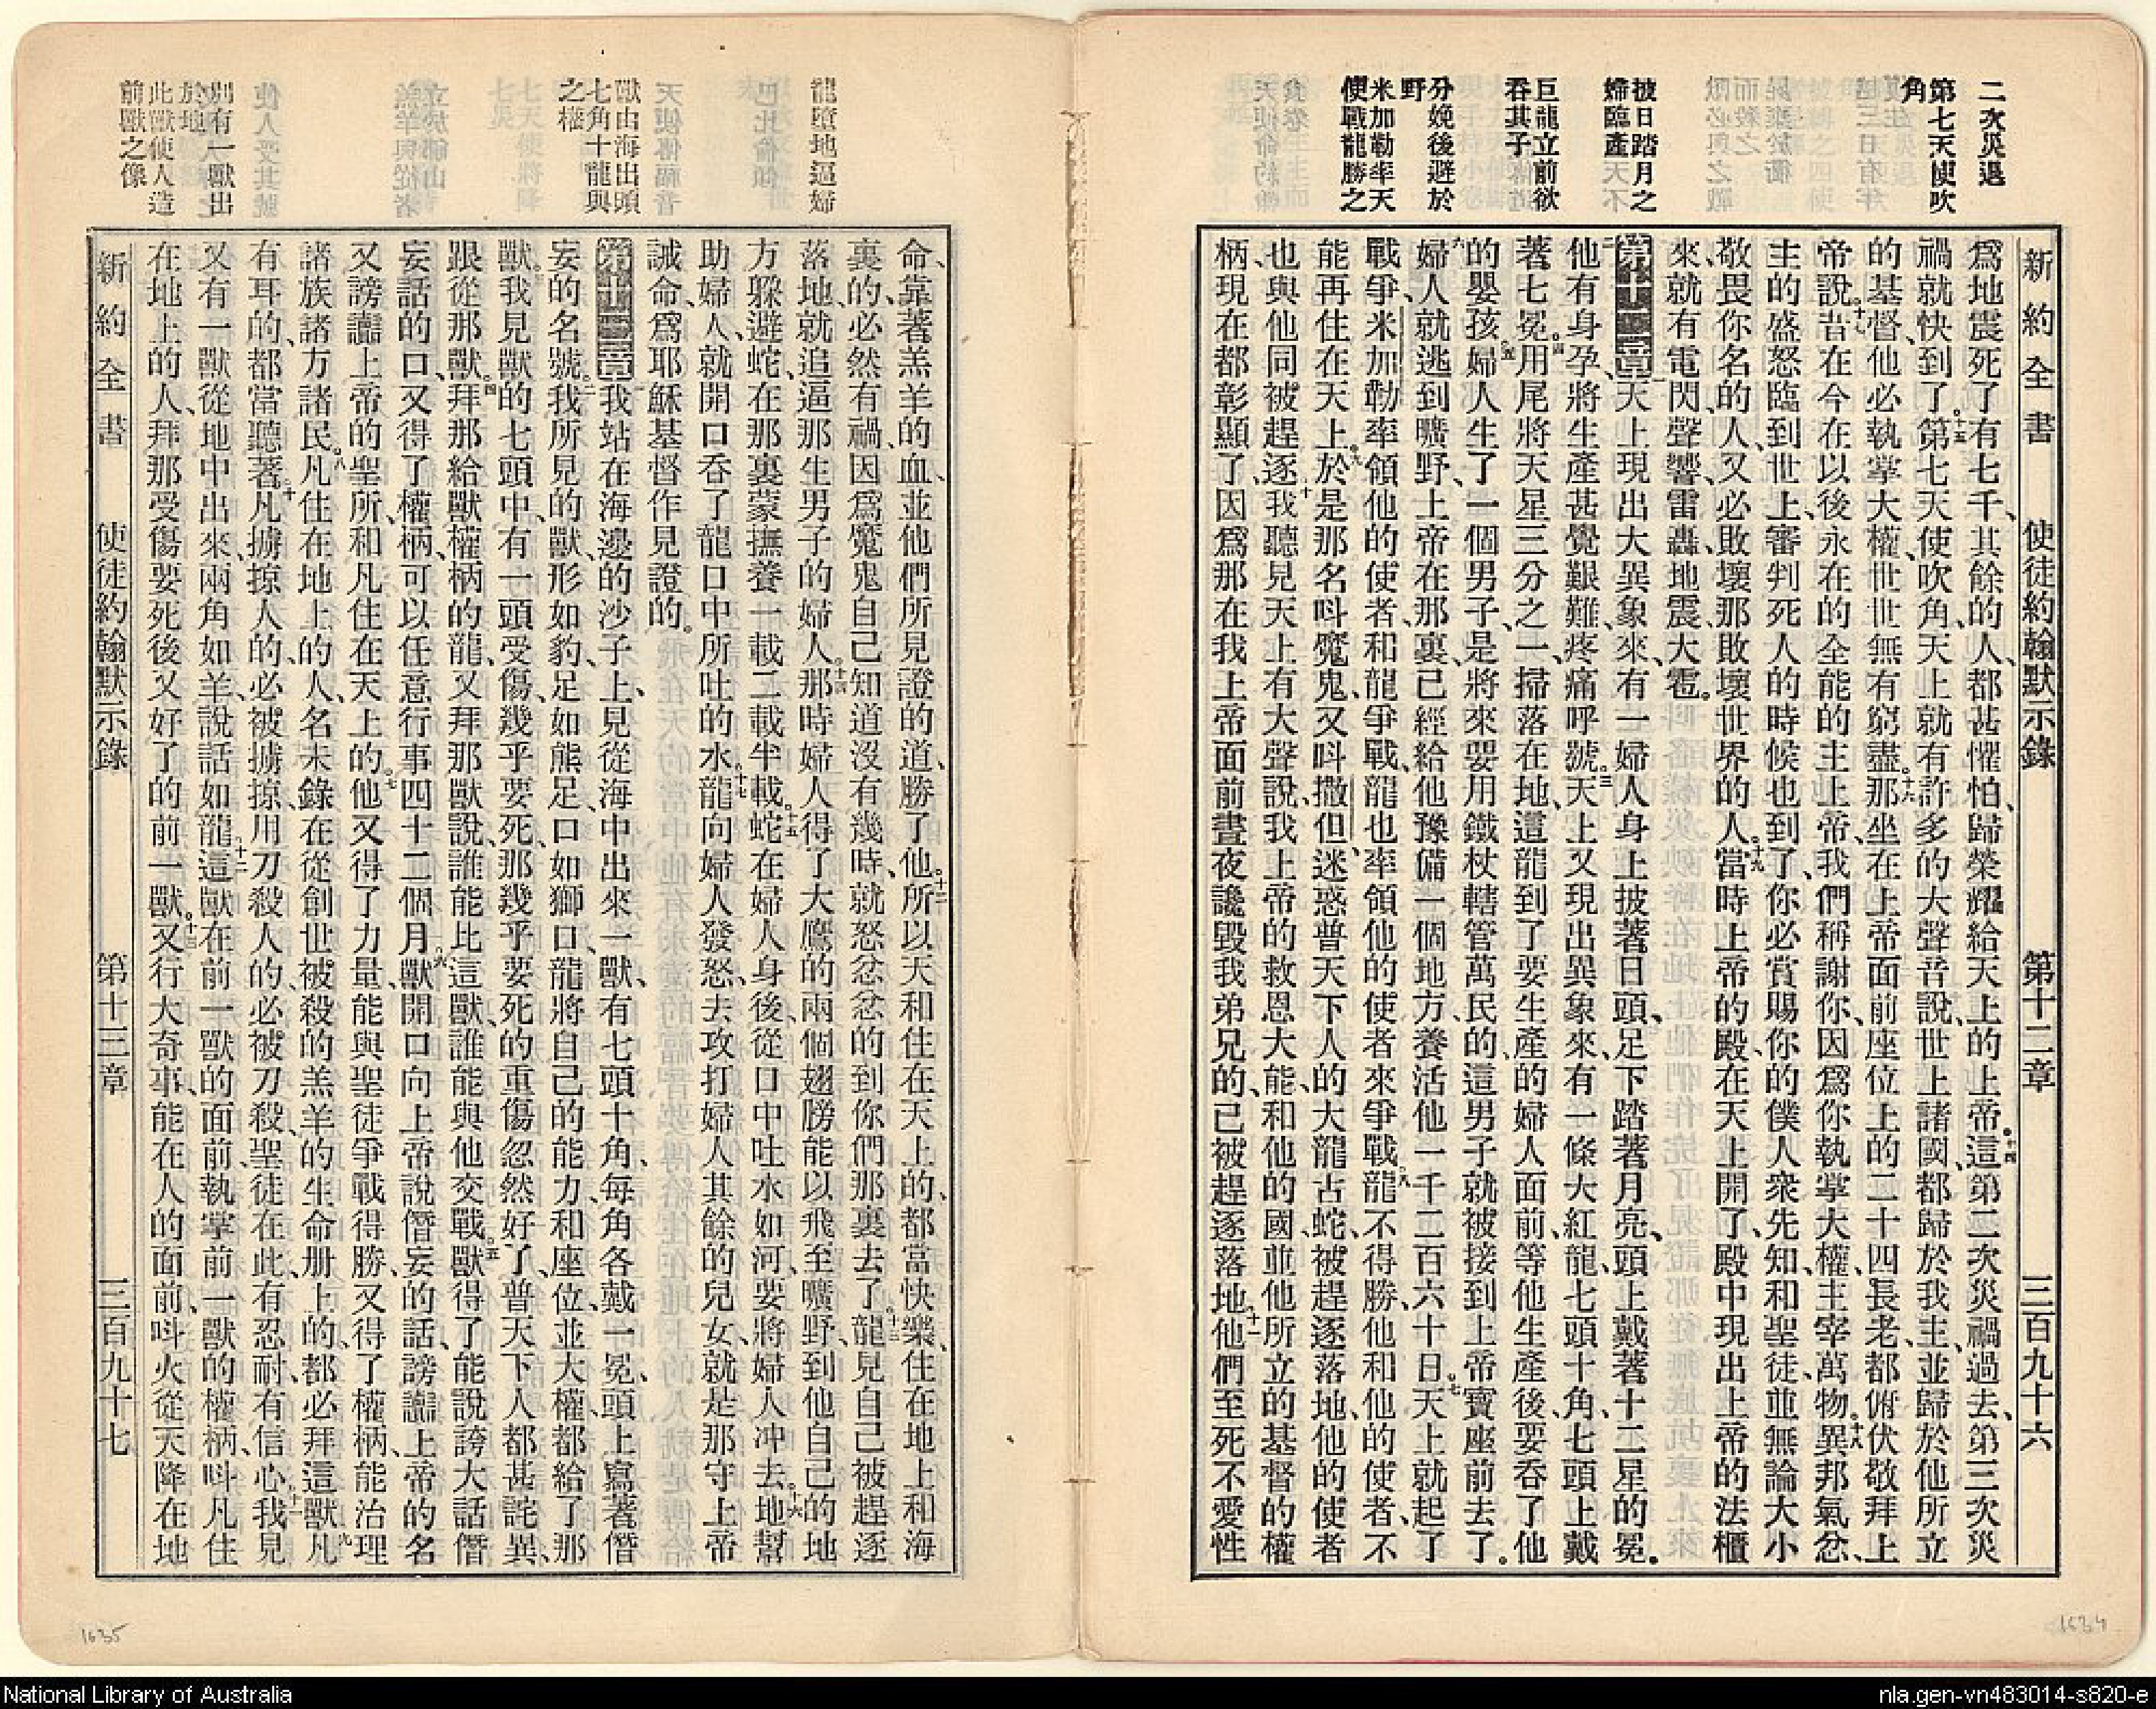 二次災退
第七天使吹
角
披日踏月之
婦臨產
巨龍立前欲
吞其子
分娩後避於
野
米加勒率天
使戰龍勝之
新約全書　使徒約翰默示錄　第十二章　三百九十六
爲地震死了有七千、其餘的人、都甚懼怕、歸榮耀給天上的上帝。十四這第二次災禍過去、第三次災
禍就快到了。十五第七天使吹角、天上就有許多的大聲音說、世上諸國、都歸於我主、並歸於他所立
的基督、他必執掌大權、世世無有窮盡。十六那坐在上帝面前座位上的二十四長老、都俯伏敬拜上
帝說、十七昔在今在以後永在的全能的主上帝、我們稱謝你、因爲你執掌大權、主宰萬物。十八異邦氣忿、
主的盛怒臨到世上、審判死人的時候也到了、你必賞賜你的僕人衆先知、和聖徒、並無論大小
敬畏你名的人、又必敗壞那敗壞世界的人。十九當時上帝的殿、在天上開了、殿中現出上帝的法櫃
來、就有電閃、聲響、雷轟、地震、大雹。
第十二章一天上現出大異象來、有一婦人身上披著日頭、足下踏著月亮、頭上戴著十二星的冕。
二他有身孕、將生產甚覺艱難、疼痛呼號。三天上又現出異象來、有一條大紅龍、七頭十角、七頭上戴
著七冕。四用尾將天星三分之一、掃落在地、這龍到了要生產的婦人面前、等他生產後、要吞了他
的嬰孩。五婦人生了一個男子、是將來要用鐵杖轄管萬民的、這男子就被接到上帝寶座前去了。
六婦人就逃到曠野、上帝在那裏、已經給他豫備一個地方、養活他一千二百六十日。七天上就起了
戰爭、米加勒率領他的使者、和龍爭戰、龍也率領他的使者來爭戰。八龍不得勝、他和他的使者、不
能再住在天上。九於是那名呌魔鬼、又呌撒但、迷惑普天下人的大龍古蛇、被趕逐落地、他的使者
也與他同被趕逐。十我聽見天上有大聲說、我上帝的救恩大能、和他的國、並他所立的基督的權
柄、現在都彰顯了、因爲那在我上帝面前晝夜讒毀我弟兄的、已被趕逐落地。十一他們至死不愛性
龍墮地逼婦
獸由海出頭
七角十龍與
之權
別有一獸出
於地
此獸使人造
前獸之像
命、靠著羔羊的血、並他們所見證的道、勝了他。十二所以天和住在天上的、都當快樂、住在地上和海
裏的、必然有禍、因爲魔鬼自己知道沒有幾時、就怒忿忿的到你們那裏去了。十三龍見自己被趕逐
落地、就追逼那生男子的婦人。十四那時婦人得了大鷹的兩個翅膀、能以飛至曠野、到他自己的地
方、躲避蛇、在那裏蒙撫養一載二載半載。十五蛇在婦人身後、從口中吐水如河、要將婦人冲去。十六地幫
助婦人、就開口吞了龍口中所吐的水。十七龍向婦人發怒、去攻打婦人其餘的兒女、就是那守上帝
誡命、爲耶穌基督作見證的。
第十三章一我站在海邊的沙子上、見從海中出來一獸、有七頭十角、每角各戴一冕、頭上寫著僭
妄的名號。二我所見的獸、形如豹、足如熊足、口如獅口、龍將自己的能力、和座位、並大權、都給了那
獸。三我見獸的七頭中、有一頭受傷、幾乎要死、那幾乎要死的重傷忽然好了、普天下人都甚詫異、
跟從那獸。四拜那給獸權柄的龍、又拜那獸說、誰能比這獸、誰能與他交戰。五獸得了能說誇大話僭
妄話的口、又得了權柄、可以任意行事四十二個月。六獸開口向上帝說僭妄的話、謗讟上帝的名
又謗讟上帝的聖所、和凡住在天上的。七他又得了力量、能與聖徒爭戰得勝、又得了權柄、能治理
諸族諸方諸民。八凡住在地上的人、名未錄在從創世被殺的羔羊的生命册上的、都必拜這獸。九凡
有耳的、都當聽著。十凡擄掠人的、必被擄掠、用刀殺人的、必被刀殺、聖徒在此、有忍耐、有信心。十一我見
又有一獸從地中出來、兩角如羊、說話如龍。十二這獸在前一獸的面前、執掌前一獸的權柄、呌凡住
在地上的人、拜那受傷要死後又好了的前一獸。十三又行大奇事、能在人的面前、呌火從天降在地
新約全書　使徒約翰默示錄　第十三章　三百九十七
1635
1634
National Library of Australia
nla.gen-vn483014-s820-e